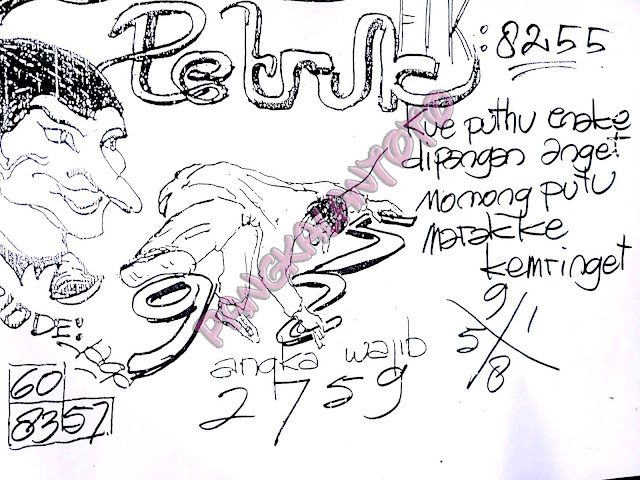 Petruk
EK: 8255
kue puthu enake
dipangan anget
momong putu
marakke
kemringet
9
5 1
8
PANGKALANTOTO
9 2 3
KODE:
angka wajib
2759
60
8357